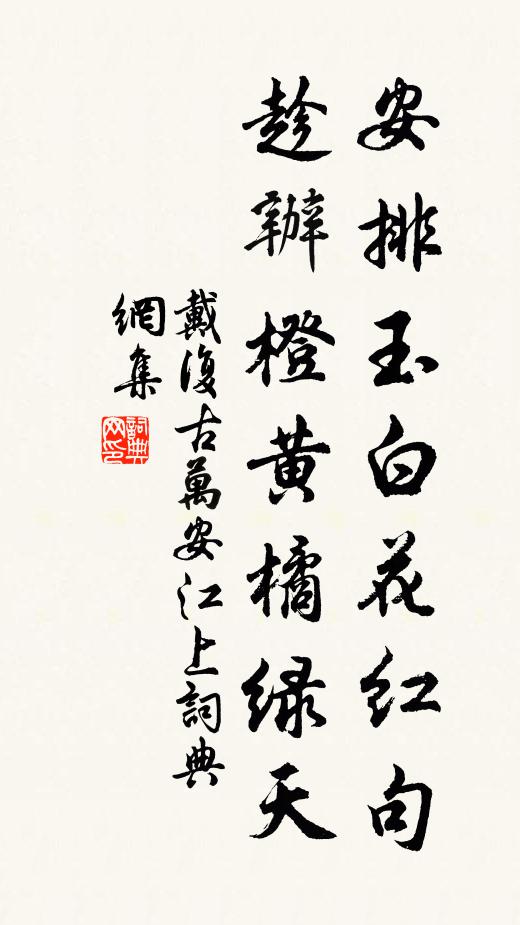 安排玉白花红句
趁辦橙黄橘绿天
戴復古萬安江上詞典
網集
詞典
网印